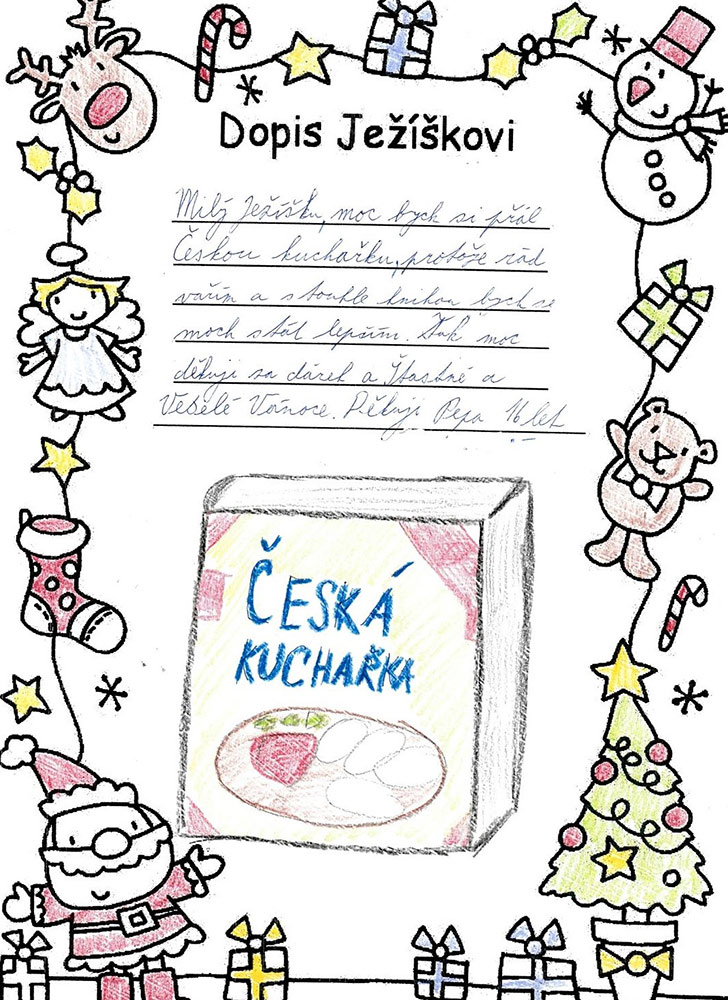 Dopis Ježíškovi
Milý Ježíšku, moc bych si přál
Českou kuchařku, protože rád
vařím a s touhle knihou bych se
moch stát lepším. Tak moc
děkuji za dárek a Štastné a
Veselé Vánoce. Děkuji Pepa 16 let
ČESKÁ
KUCHAŘKA